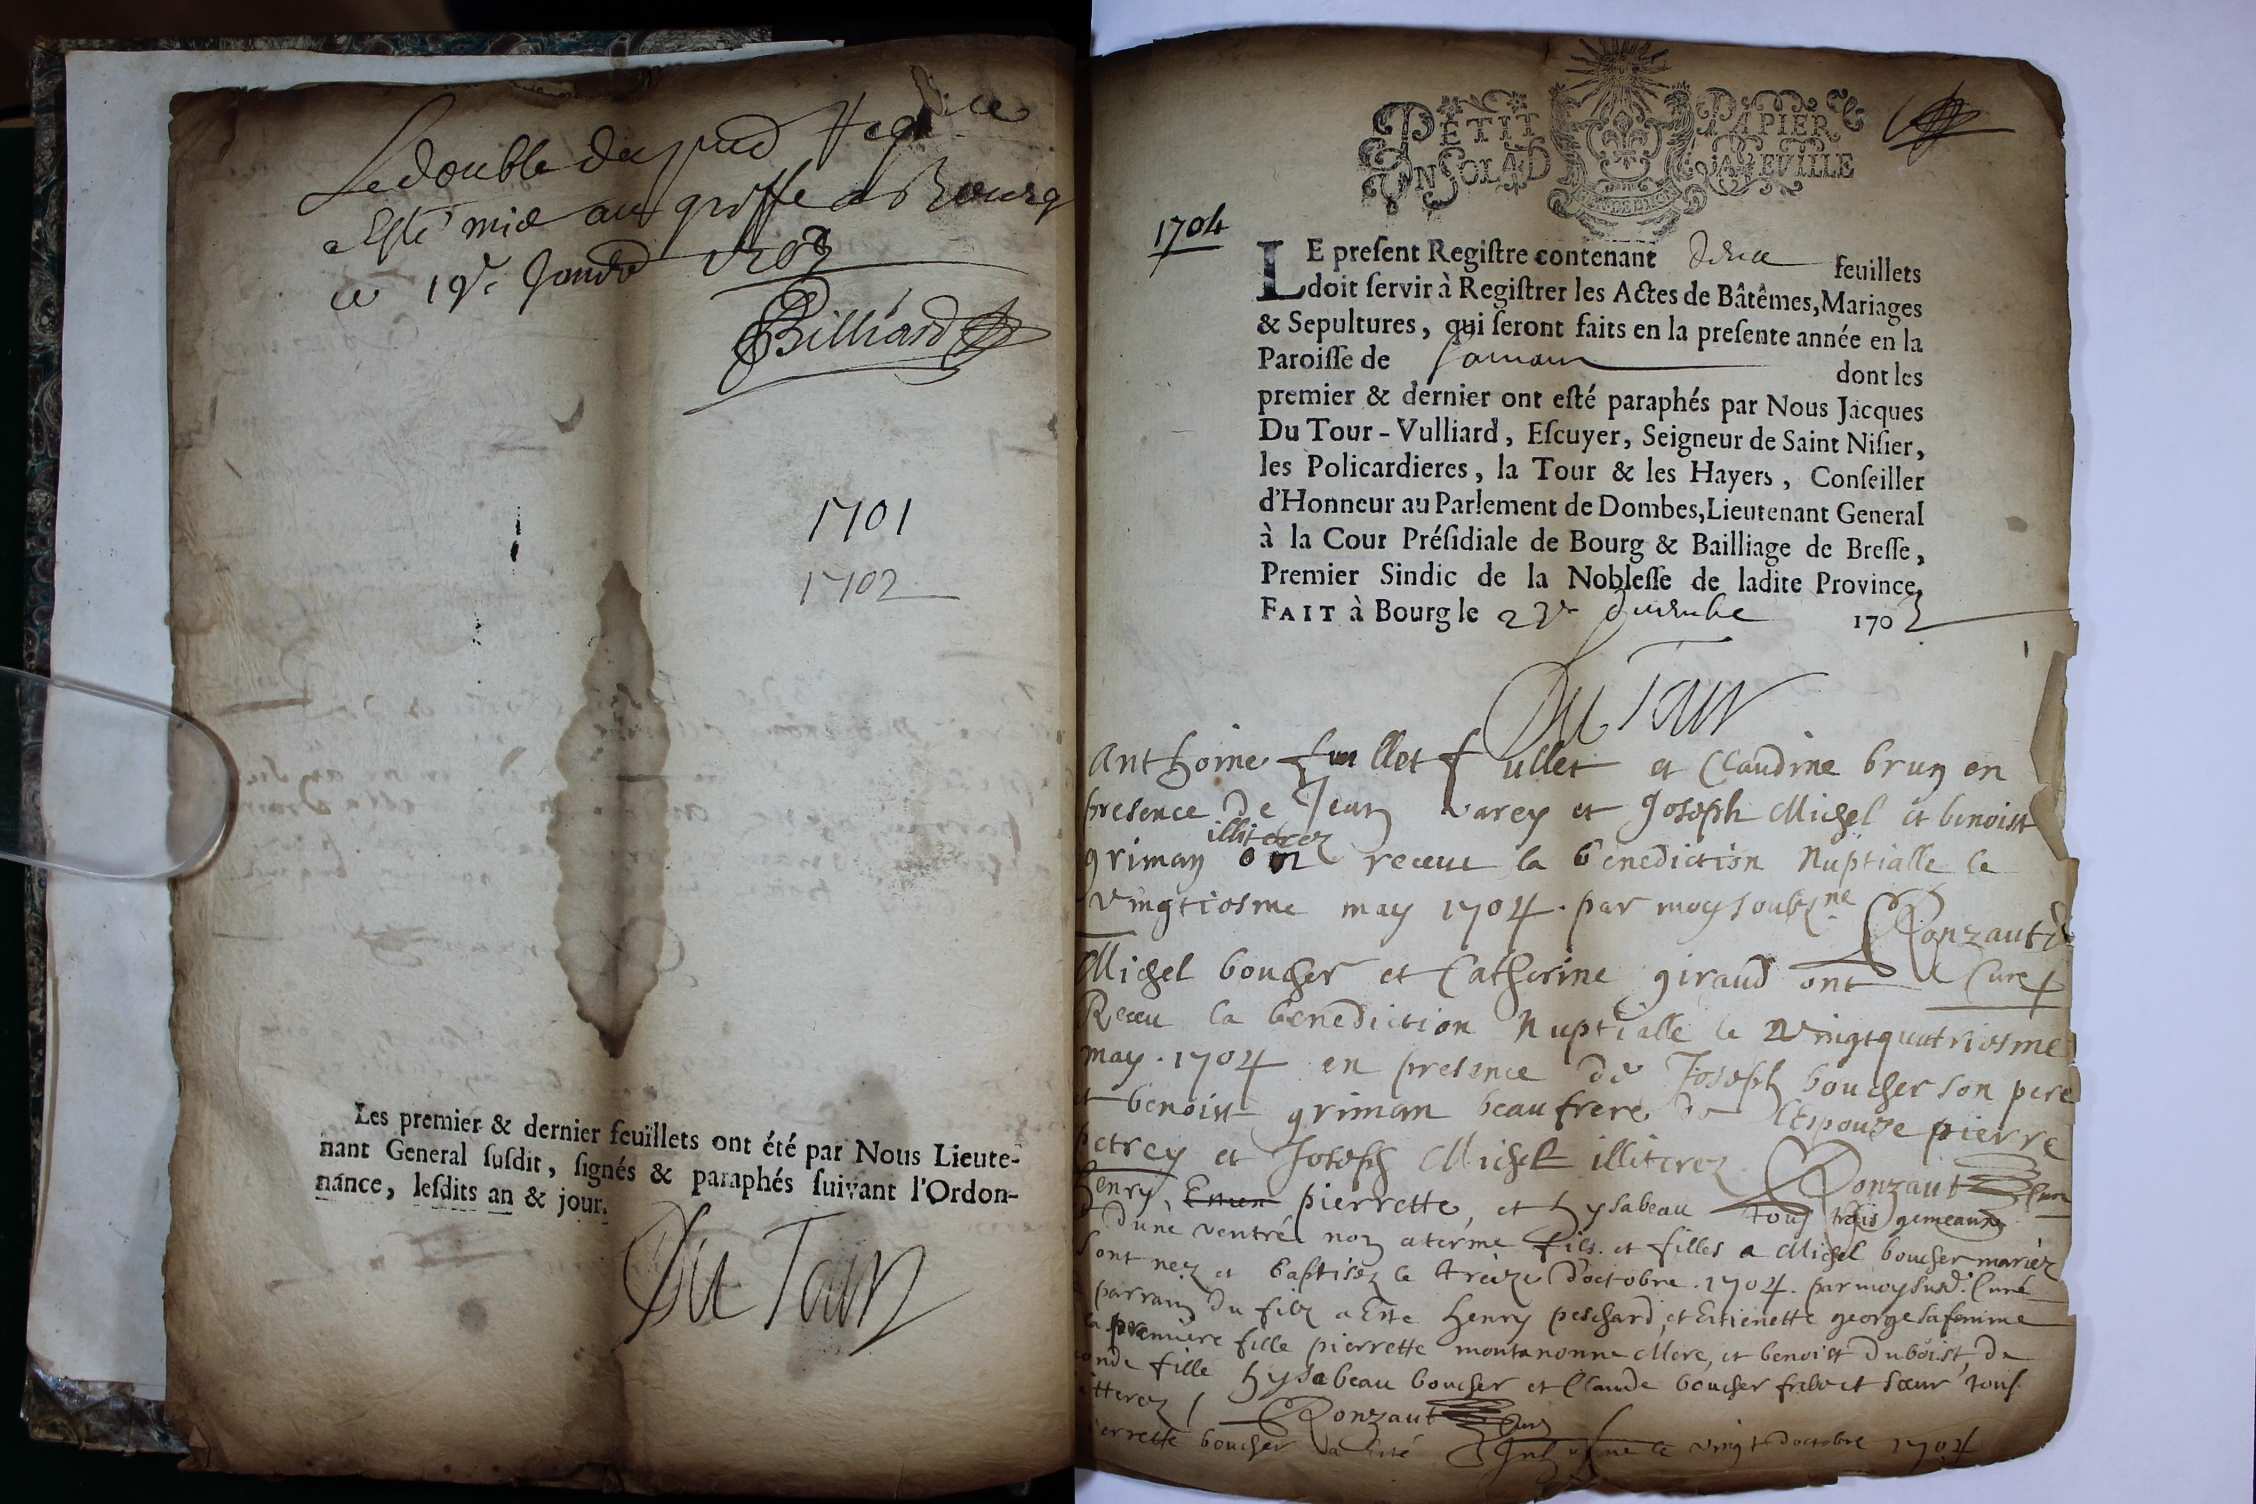 Le double du
a Esté mis au greffe de Bourg
ce 19e
Billiard
1701
1702
Les premier & dernier feüillets ont été par Nous Lieute-
nant General ſuſdit, ſignés & paraphés ſuivant l'Ordon-
nance, leſdits an & jour.
Du Tour
PETIT PAPIER
UN SOL LA D
1704
LE preſent Regiſtre contenant feuillets
doit ſervir à Regiſtrer les Actes de Bâtêmes, Mariages
& Sepultures, qui ſeront faits en la preſente année en la
Paroiſſe de dont les
premier & dernier ont eſté paraphés par Nous Jacques
Du Tour-Vulliard, Eſcuyer, Seigneur de Saint Niſier,
les Policardieres, la Tour & les Hayers, Conſeiller
d'Honneur au Parlement de Dombes, Lieutenant General
à la Cour Préſidiale de Bourg & Bailliage de Breſſe,
Premier Sindic de la Nobleſſe de ladite Province,
FAIT à Bourg le 170
Du Tour
Anthoine fullet et Claudine brun en
presence de Jean varey et Joseph Michel et benoist
griman illiterez ont receue la benediction Nuptialle le
vingtiesme may 1704. par moy soubz.ne
Ronzaut
Curé
Michel boucher et Catherine giraud ont
Receu la benediction Nuptialle le vingtquatriesme
may. 1704 en presence de Joseph boucher son pere
et benoist griman beaufrere de l'Espouze pierre
petrey et Joseph Michel illiterez. Ronzaut Curé
henry, pierrette, et hysabeau tous trois gemeaux
d'une ventré non a terme fils. et filles a Michel boucher mariez
sont nez et baptisez le treize d'octobre. 1704. par moy susd. Curé
parrain du filz a Este henry peschard, et Estienette george sa femme
la premiere fille pierrette montanonne Mere, et benoist duboist, de
fille hysabeau boucher et Claude boucher frere et sœur tous
Ronzaut Curé
boucher a Esté le vingt d'octobre 1704